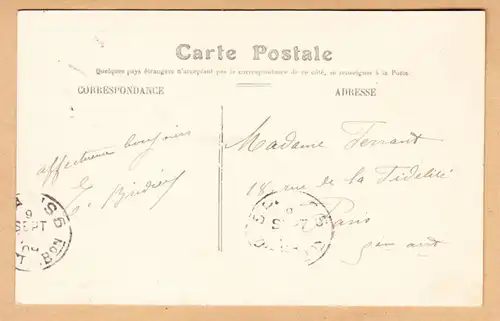 Carte Postale
Quelques pays étrangers n'acceptant pas la correspondance de ce côté, se renseigner à la Poste
CORRESPONDANCE
ADRESSE
affectueux bonjours
Madame Ferrant
18 rue de la Fidélité
Paris
9
SEPT